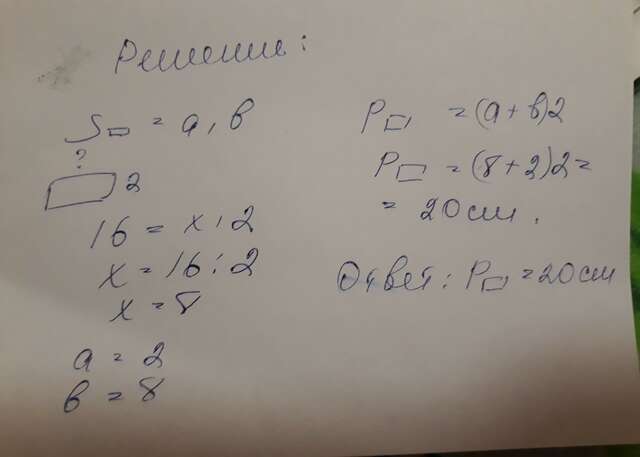 Решение:
S▭ = a, в
?
2
16 = x , 2
x = 16 : 2
x = 8
a = 2
в = 8
P▭ = (a + в)2
P▭ = (8 + 2)2 =
= 20 см.
Ответ: P▭ = 20 см